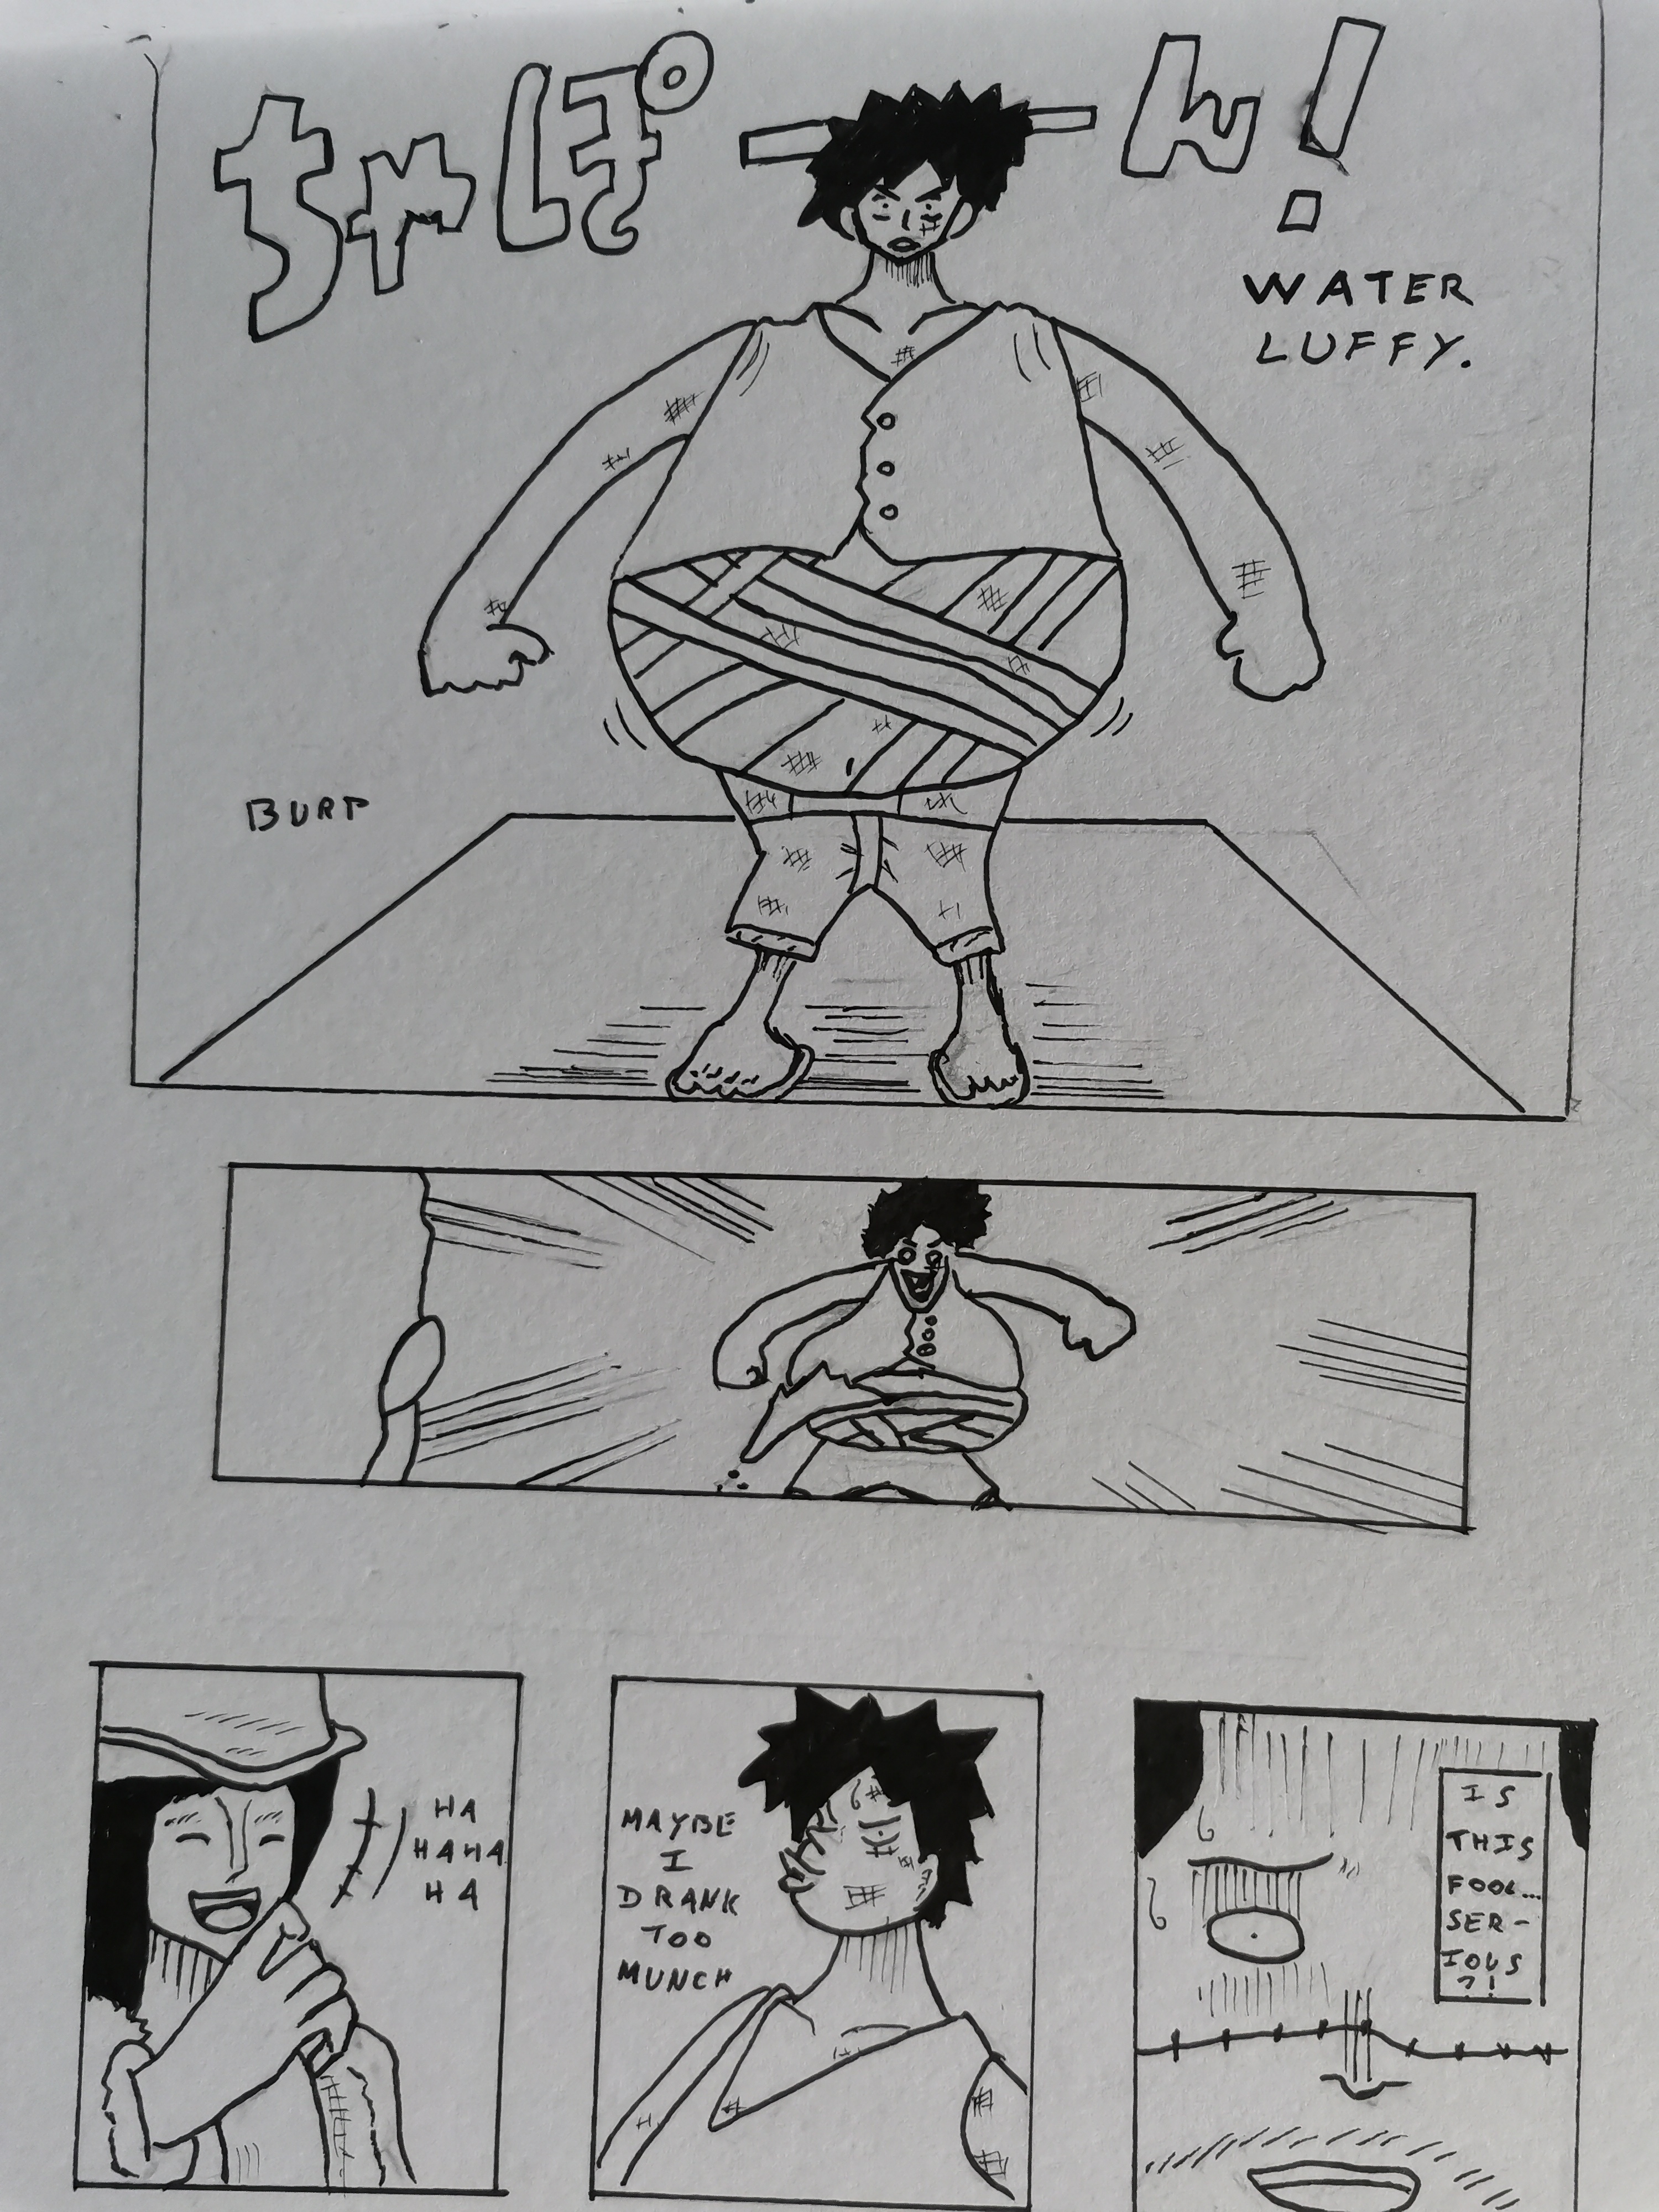 ちゃぽーん!
WATER
LUFFY.
BURP
HA
HAHA
HA
MAYBE
I
DRANK
TOO
MUNCH
IS
THIS
FOOL...
SER-
IOUS
?!